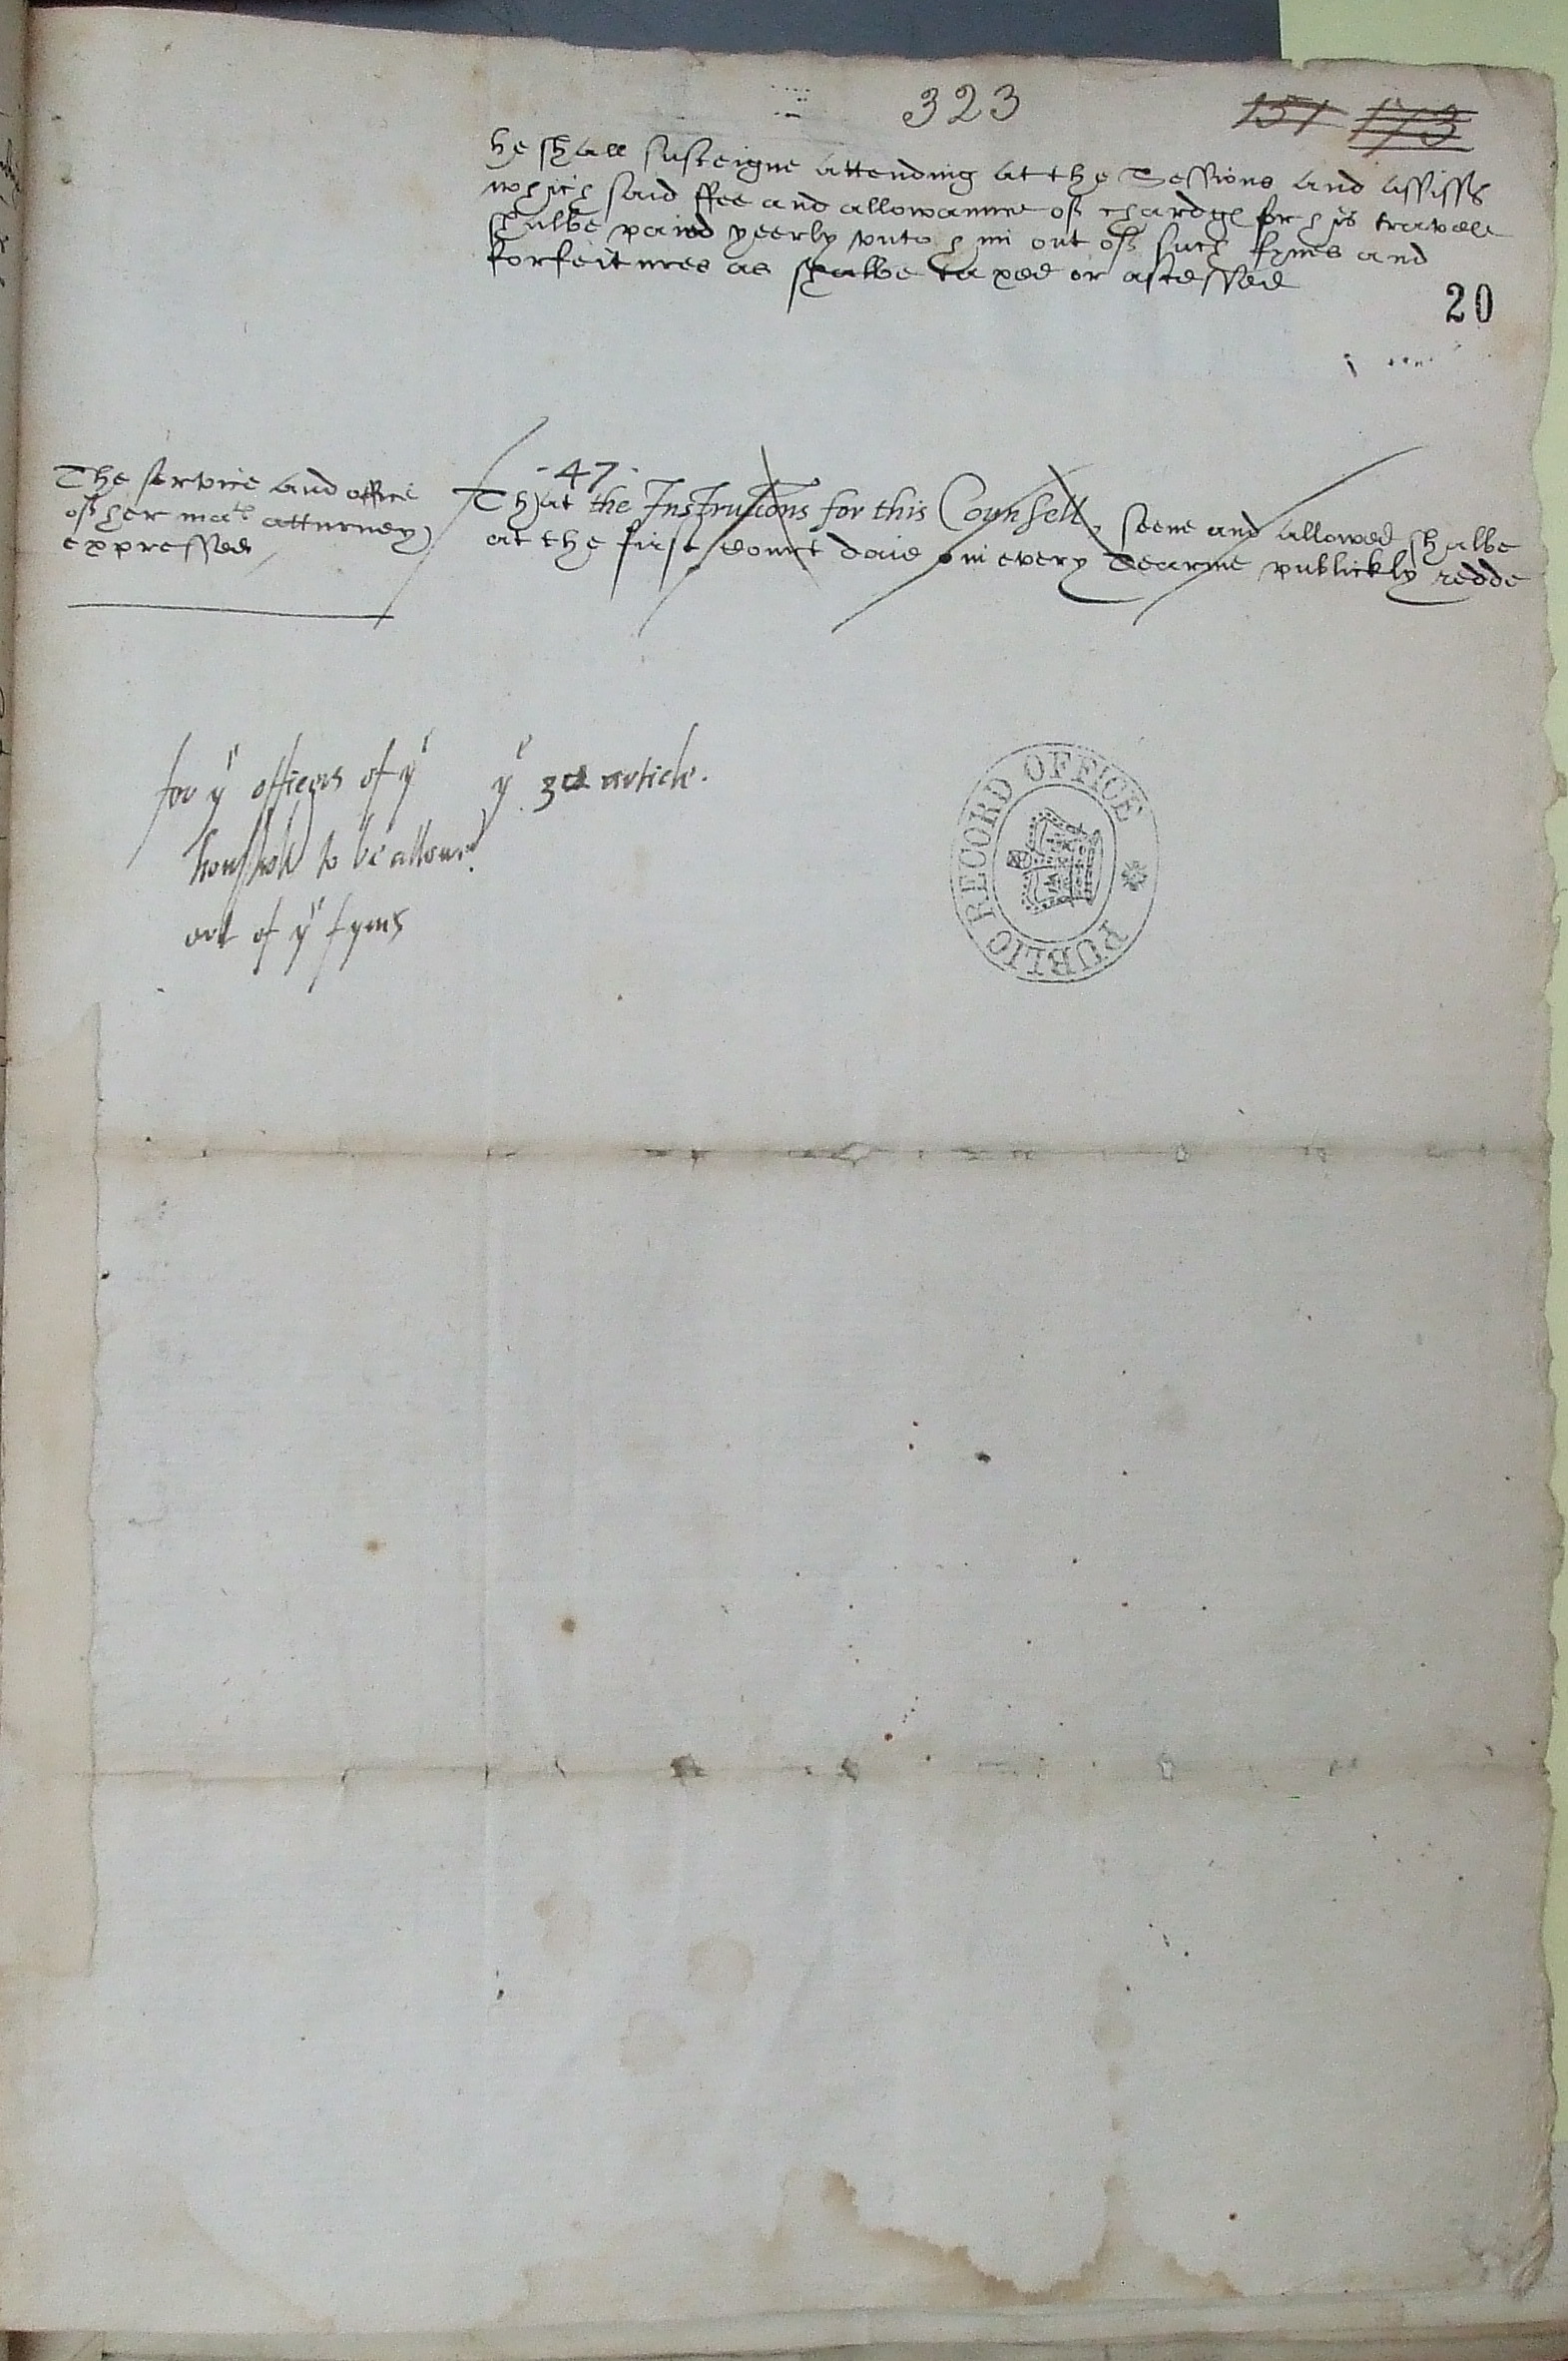 323
151 173
he shall susteigne attending at the Sessions and assisses
which said ffee and allowaunce of chardge for his travell
shalbe paied yeerly vnto him out of such fynes and
forfeitures as shalbe taxed or assessed
20
The service and office
of her mats atturney
expressed
-47-
That the Instrucions for this Counsell, seene and allowed shalbe
at the first Court daie in every Tearme publickly redde
for ye officers of ye
houshold to be allowed
out of ye fynes
ye 3d article.
PUBLIC RECORD OFFICE